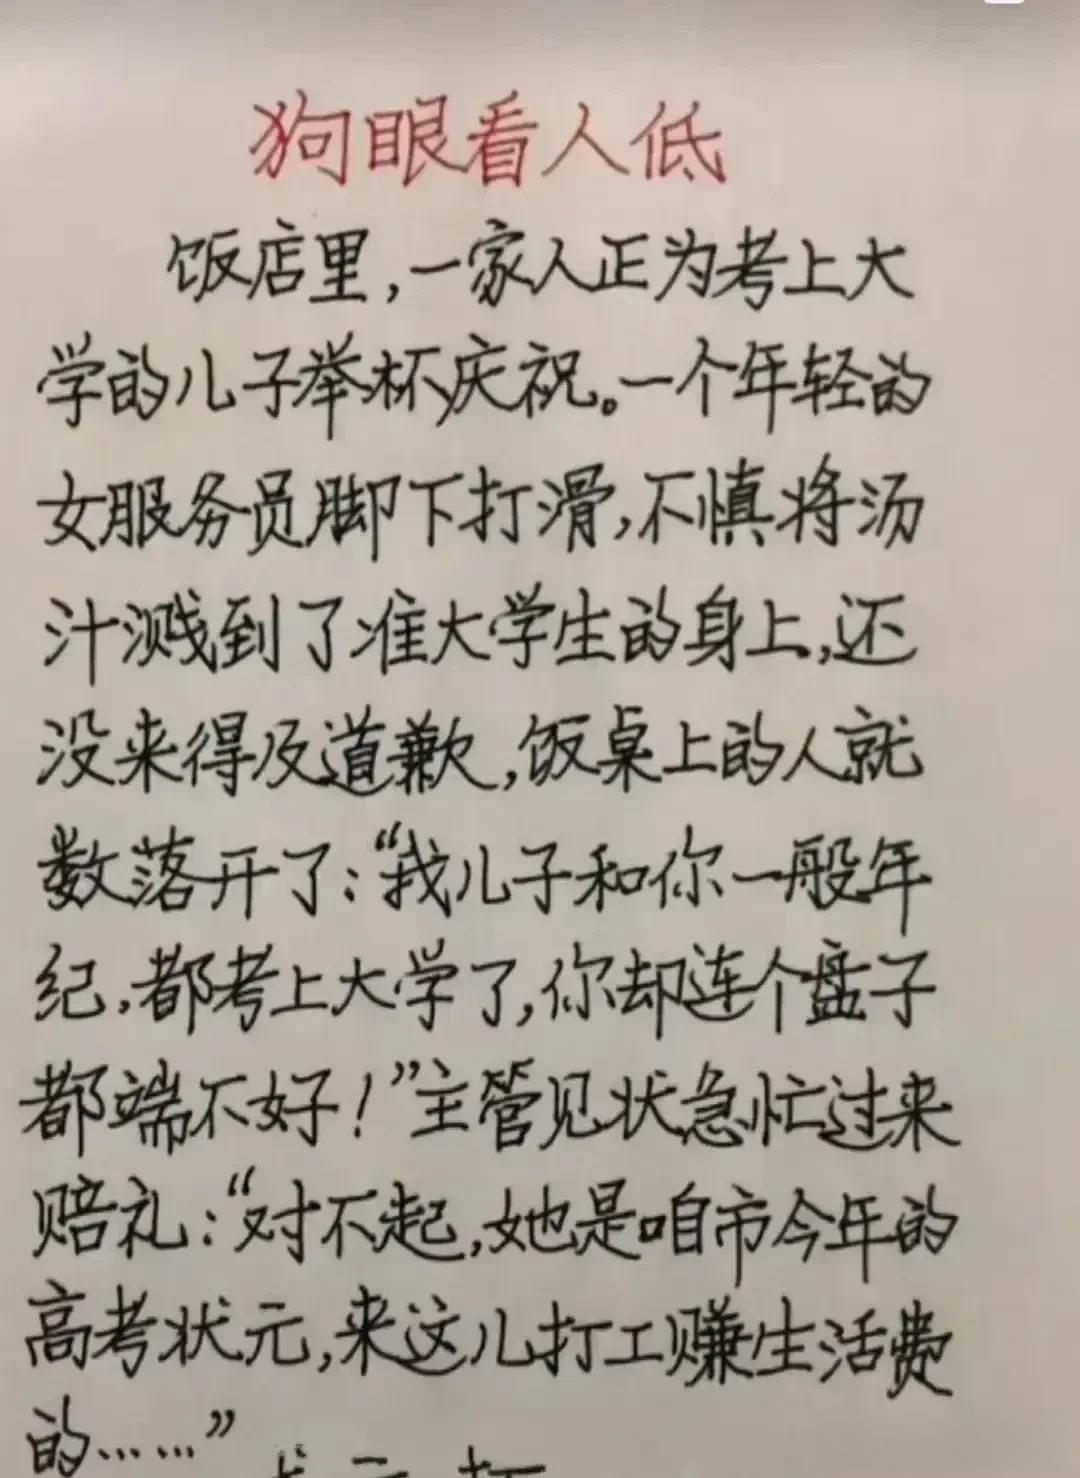 狗眼看人低
饭店里，一家人正为考上大
学的儿子举杯庆祝。一个年轻的
女服务员脚下打滑，不慎将汤
汁溅到了准大学生的身上，还
没来得及道歉，饭桌上的人就
数落开了：“我儿子和你一般年
纪，都考上大学了，你却连个盘子
都端不好！”主管见状急忙过来
赔礼：“对不起，她是咱市今年的
高考状元，来这儿打工赚生活费
的……”